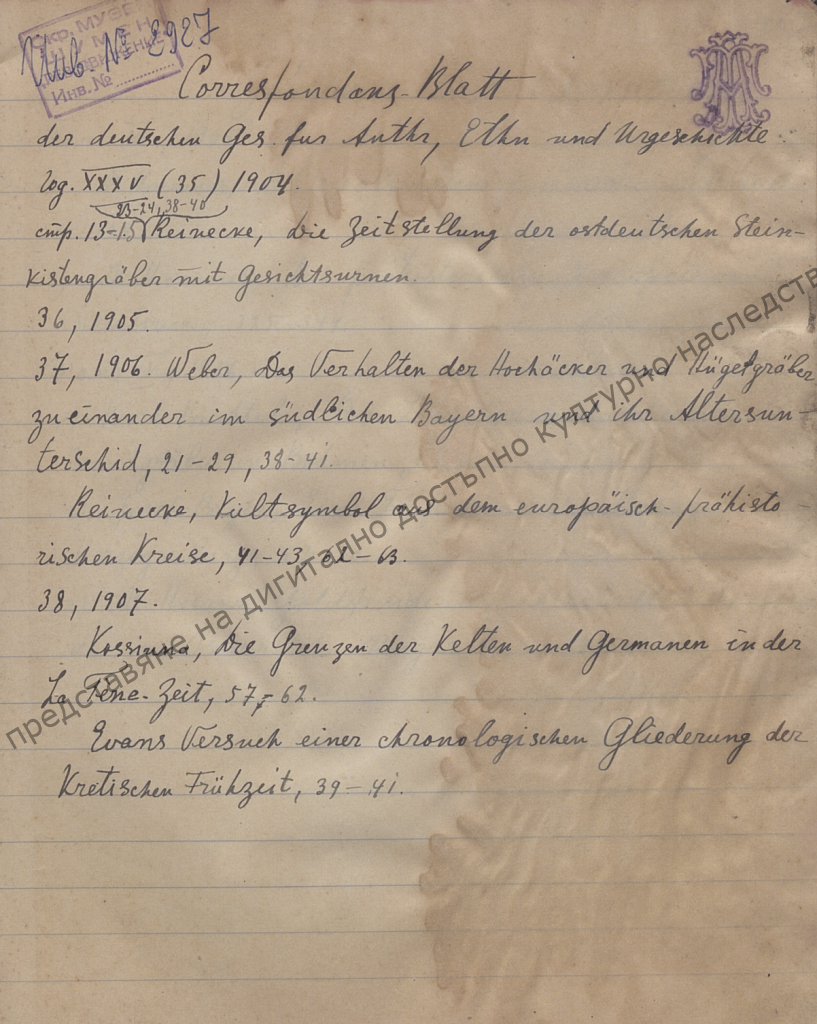 Инв № 2927
Окр. МУЗЕ
ШУМЕН
Инв. №
Correspondans-Blatt
der deutschen Ges. fur Anthr, Ethn und Urgeschichte
год. XXXV (35) 1904.
23-24, 38-40
стр. 13-15 Reinecke, Die Zeitstellung der ostdeutschen Stein-
kistengräber mit Gesichtsurnen.
36, 1905.
37, 1906. Weber, Das Verhalten der Hochäcker und Hügelgräber
zueinander im südlichen Bayern und ihr Altersun-
terschid, 21-29, 38-41.
Reinecke, Kultsymbol aus dem europäisch-prähisto-
rischen Kreise, 41-43, 62-63.
38, 1907.
Kossinna, Die Grenzen der Kelten und Germanen in der
La Tene-Zeit, 57-62.
Evans Versuch einer chronologischen Gliederung der
Kretischen Frühzeit, 39-41.
представяне на дигитално достъпно културно наследств